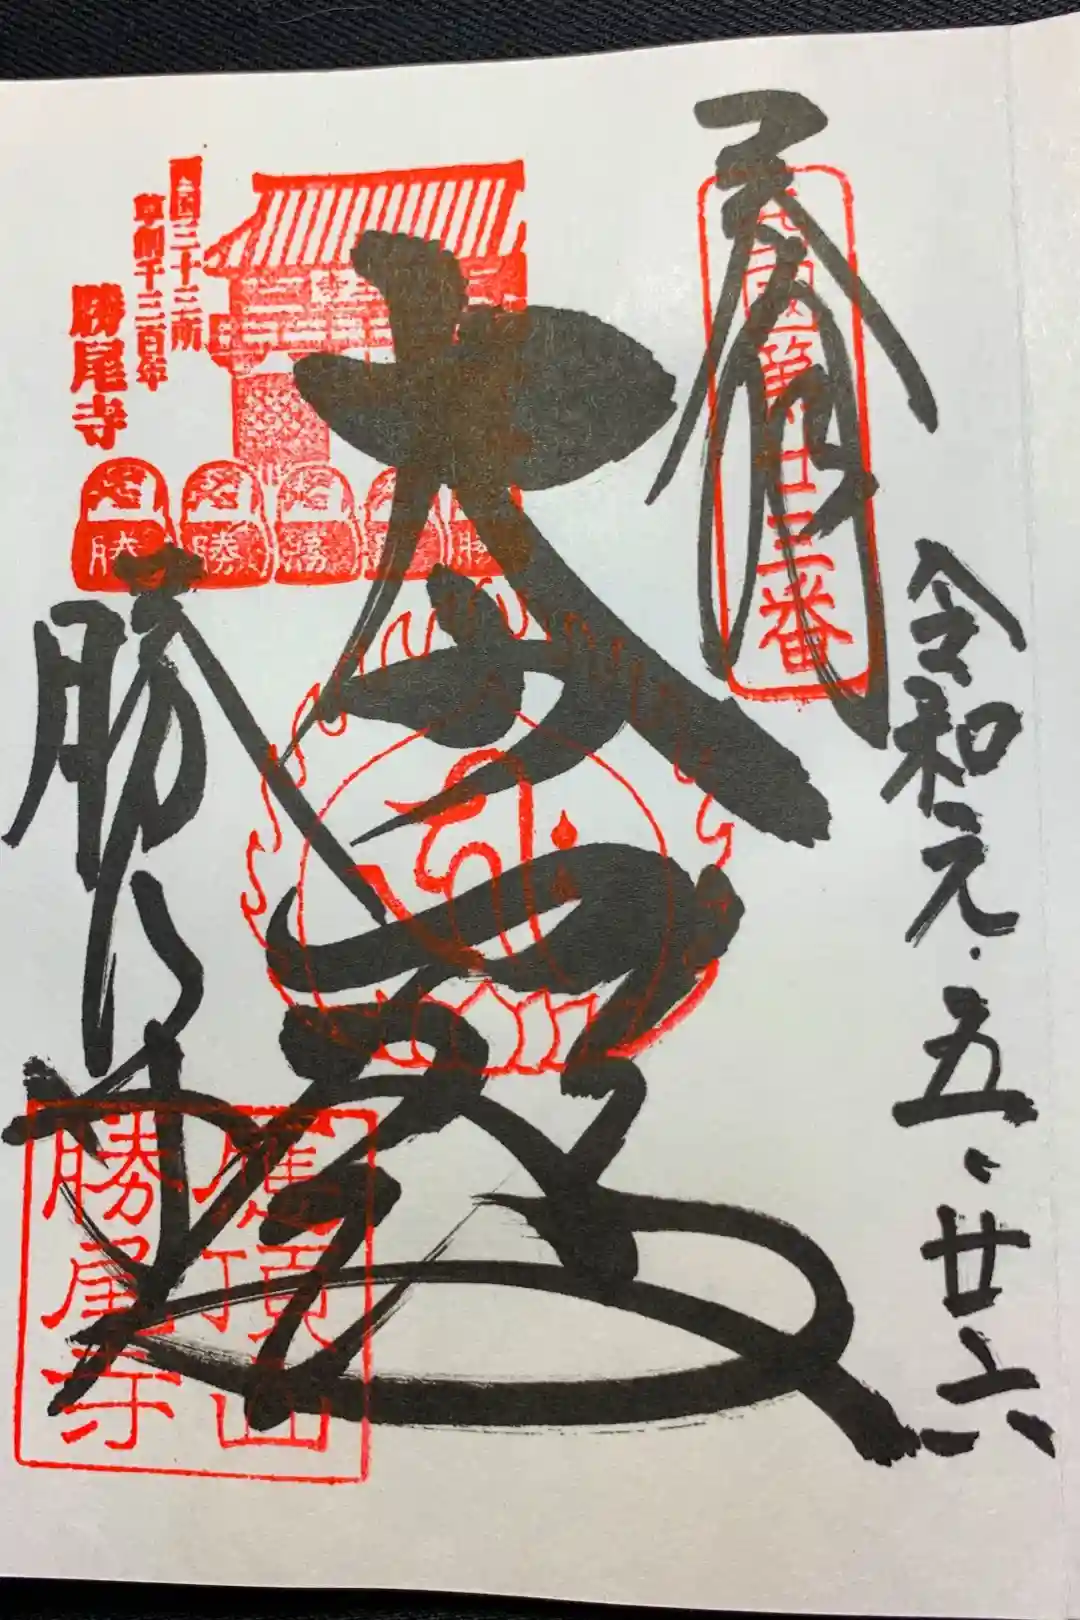 奉拝
西国第廿三番
令和元.五、廿六
大悲殿
西国三十三所
草創千三百年
勝尾寺
勝
勝
勝
勝
勝尾寺
應頂山
勝尾寺